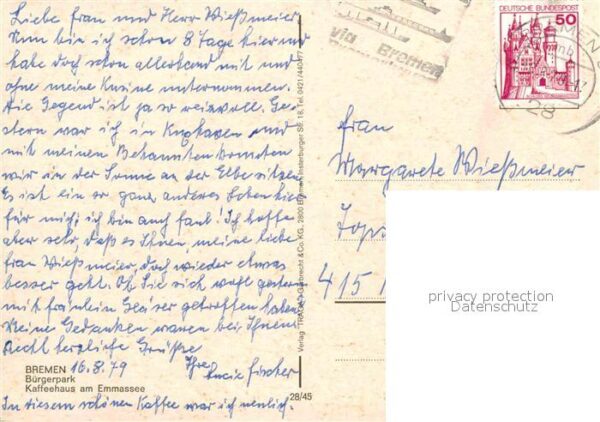 Liebe Frau und Herr Wießmeier
Nun bin ich schon 8 Tage hier und
habe doch schon allerhand mit und
ohne meine Kusine unternommen.
Die Gegend ist ja so reizvoll. Ge-
stern war ich in Kuxhaven und
mit meinen Bekannten konnten
wir in der Sonne an der Elbe sitzen
Es ist ein so ganz anderes Leben hier
für mich, ich bin auch faul! Ich hoffe
aber sehr, daß es Ihnen, meine liebe
Frau Wießmeier, doch wieder etwas
besser geht. Ob Sie sich wohl gestern
mit Fräulein Gläser getroffen haben
Meine Gedanken waren bei Ihnen
Recht herzliche Grüße
Ihre
Lucie Fischer
BREMEN 16.8.79
Bürgerpark
Kaffeehaus am Emmassee
In diesem schönen Kaffee war ich neulich.
28/45
Verlag "TRAGA" Garbrecht & Co. KG, 2800 Bremen, Insterburger Str. 18, Tel. 0421/440477
via Bremen
DEUTSCHE BUNDESPOST
50
28
Frau
Margarete Wießmeier
415
privacy protection
Datenschutz